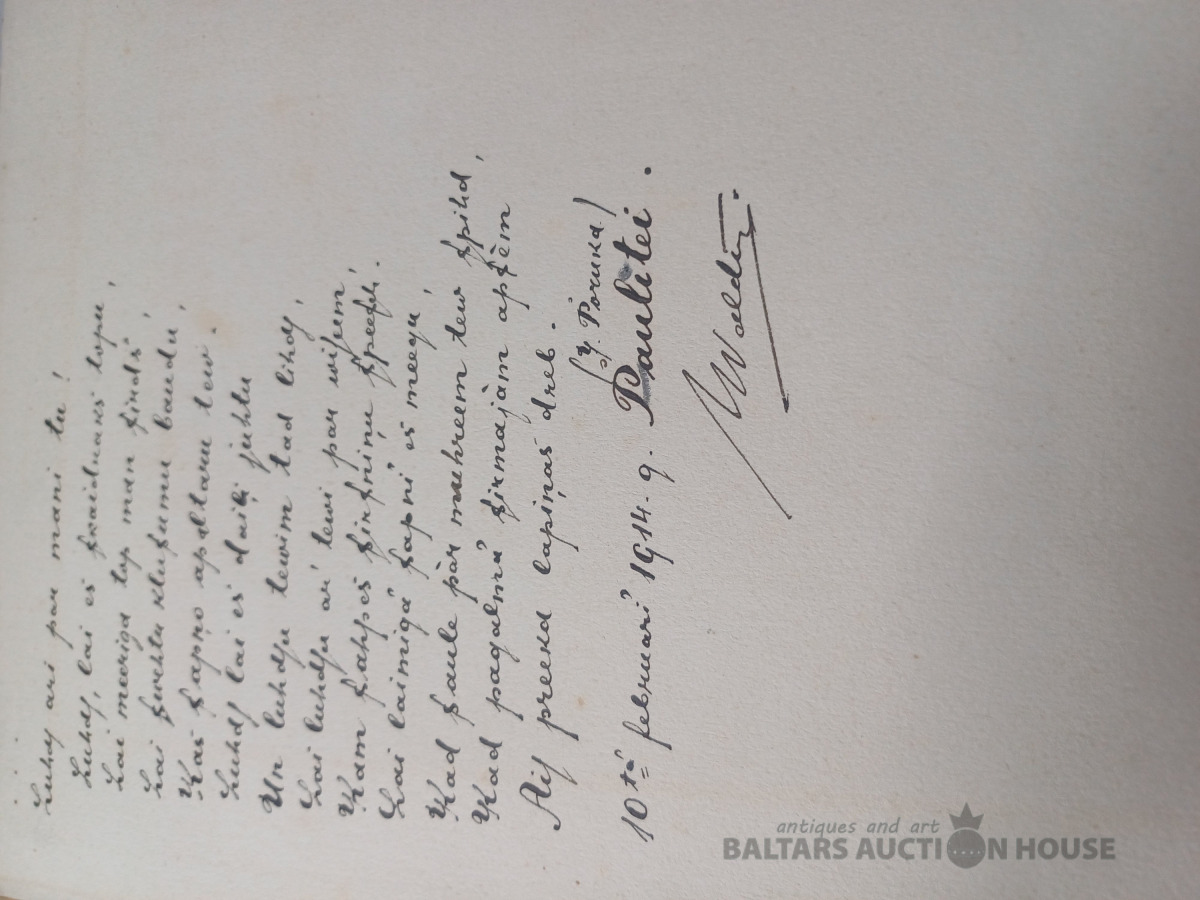 Luhdſ ari par mani tu!
Luhdſ, lai es ſkaidraks topu,
Lai meerigs top man ſirds,
Lai ſwehtu kluſumu baudu,
Kas ſapņo apkltaru tew.
Luhdſ lai es daiļi juhtu
Un luhdſu tewim tad lihdſ,
Lai luhdſu ar' tewi par wiſeem,
Kam ſahpes ſirſniņu ſpeeſch.
Lai laimigā ſapnī es meegu,
Kad ſaule pār muhreem tew ſpihd,
Kad pagalmā ſirmajām apſēm
Aiſ preeka lapiņas dreb.
/J. Poruka/
10tā februarī 1914. g. Paulitei.
Woldis.
antiques and art
BALTARS AUCTION HOUSE